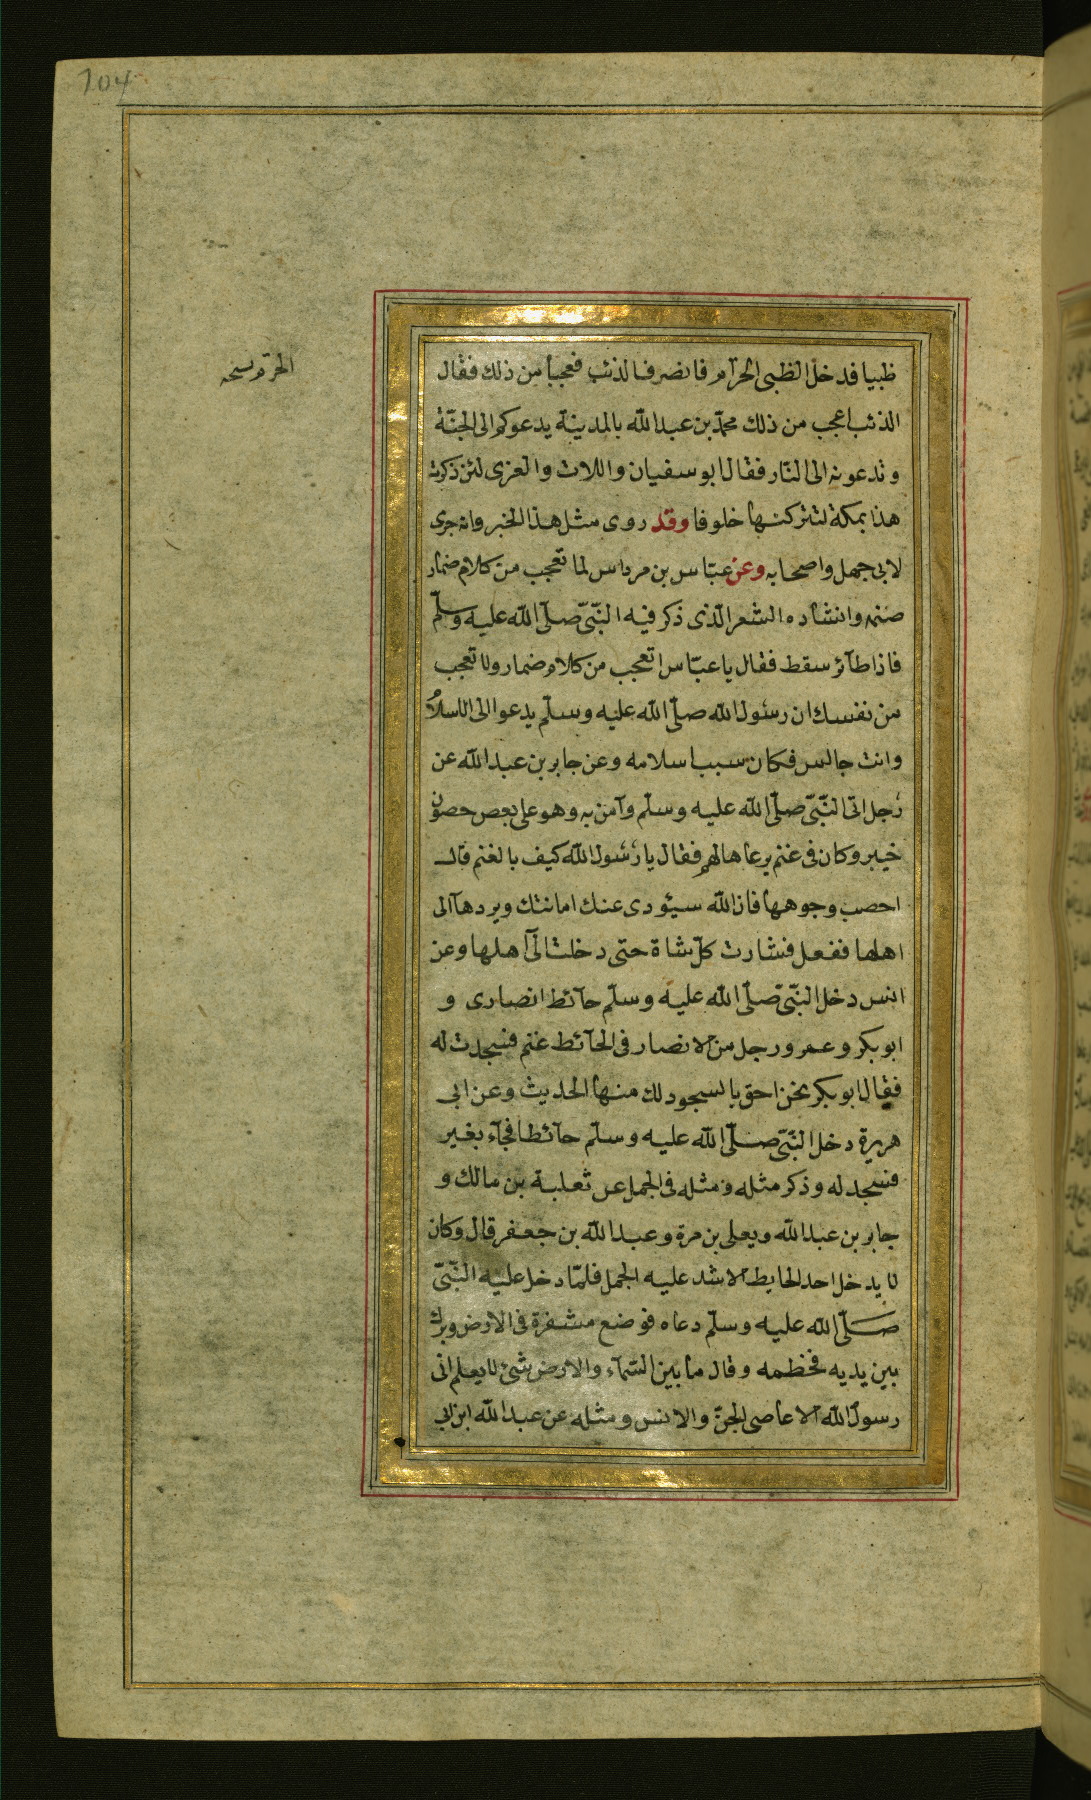 104
الحرم نسخه
ظبيا فدخل الظبى الحرام فانصرف الذئب فعجبا من ذلك فقال
الذئب اعجب من ذلك محمّد بن عبد الله بالمدينة يدعوكم الى الجنّة
وتدعونه الى النّار فقال ابو سفيان واللات والعزى لئن ذكرت
هذا بمكة لتتركنها خلوفا وقد روى مثل هذا الخبر وانه جرى
لابى جهل واصحابه وعن عبّاس بن مرداس لما تعجب من كلام ضمار
صنمه وانشاده الشعر الّذى ذكر فيه النّبىّ صلّى الله عليه وسلّم
فاذا طآئر سقط فقال يا عبّاس اتعجب من كلام ضمار ولا تعجب
من نفسك ان رسول الله صلّى الله عليه وسلّم يدعو الى الاسلام
وانت جالس فكان سبب اسلامه وعن جابر بن عبد الله عن
رجل اتى النّبىّ صلّى الله عليه وسلّم وآمن به وهو على بعض حصون
خيبر وكان فى غنم يرعاها لهم فقال يا رسول الله كيف بالغنم قال
احصب وجوهها فان الله سيئودى عنك امانتك ويردها آلى
اهلها ففعل فشارت كلّ شاة حتى دخلت الى آهلها وعن
انس دخل النّبىّ صلّى الله عليه وسلّم حآئط انصارى و
ابو بكر وعمر ورجل من الانصار فى الحآئط غنم فسجدت له
فقال ابو بكر نحن احق بالسجود لك منها الحديث وعن ابى
هريرة دخل النّبىّ صلّى الله عليه وسلّم حآئطا فجآء بغير
فسجد له وذكر مثله ومثله فى الجمل عن ثعلبة بن مالك و
جابر بن عبد الله ويعلى بن مرة وعبد الله بن جعفر قال وكان
لا يدخل احد الحايط الا شد عليه الجمل فلمّا دخل عليه النّبىّ
صلّى الله عليه وسلّم دعاه فوضع مشفرة فى الارض وبرك
بين يديه فخطمه وقال ما بين السّمآء والارض شئ لا يعلم انى
رسول الله الا عاصى الجنّ والانس ومثله عن عبد الله ابن ابى